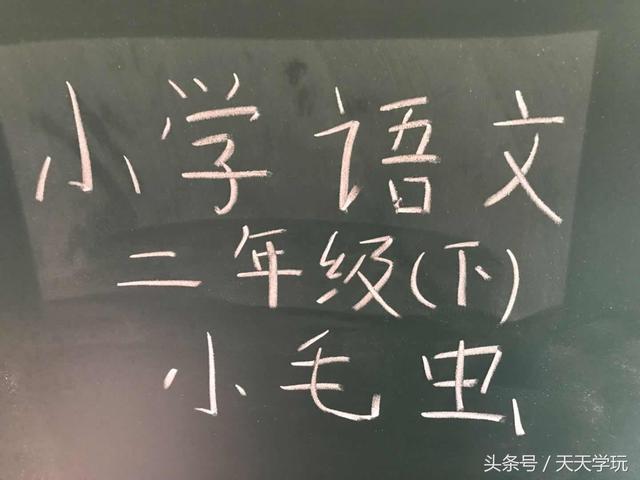 小学语文
二年级(下)
小毛虫
头条号/天天学玩